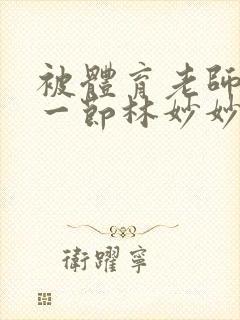 被體育老師
一節林妙妙
衛躍寧